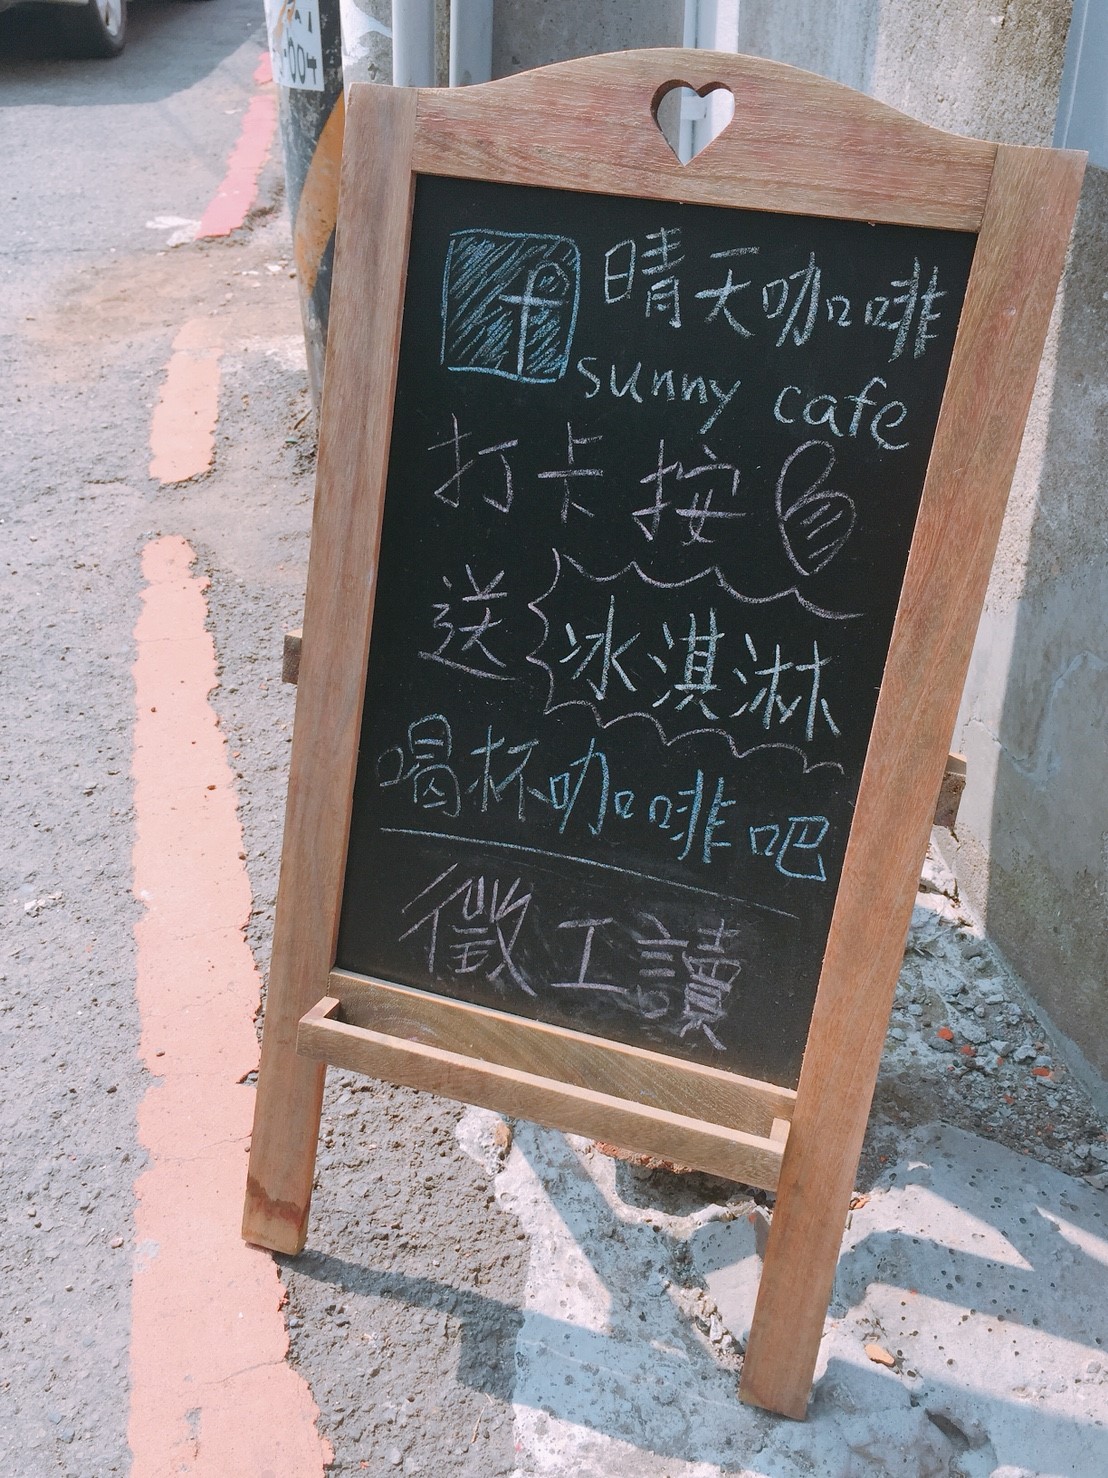 晴天咖啡
sunny cafe
打卡按
送冰淇淋
喝杯咖啡吧
徵工讀